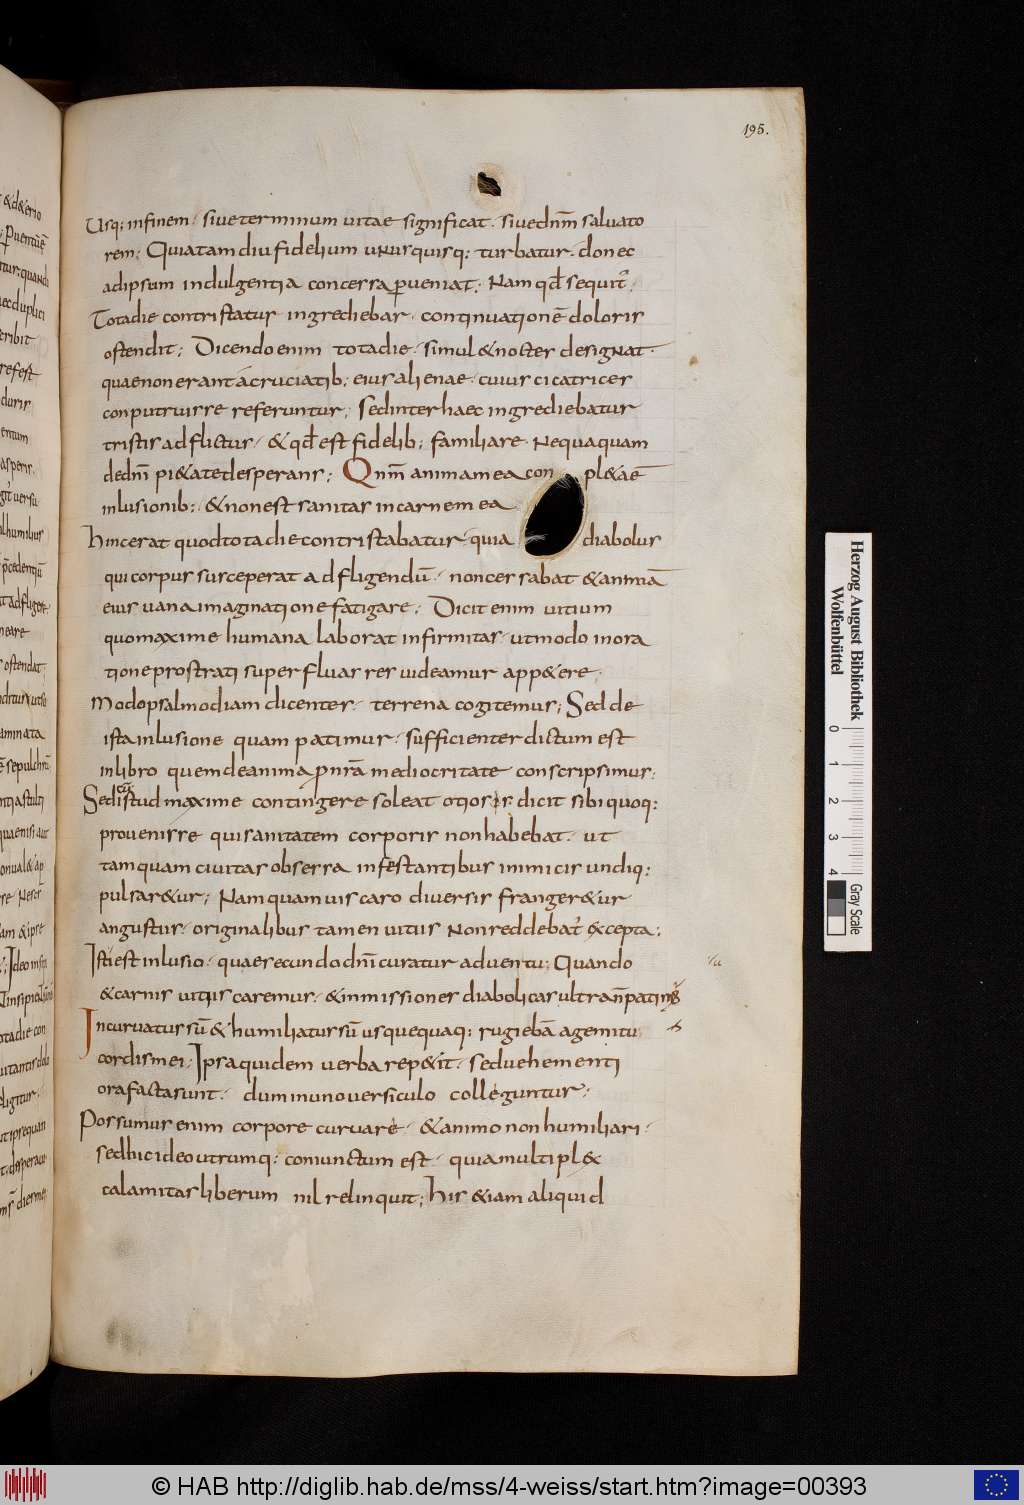 195.
Usq; infinem · siueterminum uitae significat · siuednm̄ saluato
rem; Quiatamdiu fidelium unusquisq; turbatur · donec
adipsum indulgentia concessa ꝑueniat; Nam qd̄ sequit᷒;
Totadie contristatus ingrediebar · continuationē doloris
ostendit; Dicendo enim totadie · simul & noctes designat ·
quae non erant á cruciatib; eius alienae · cuius cicatrices
conputruisse referuntur; Sed inter haec ingrediebatur
tristis adflictus · & qd̄ est fidelib; familiare · Nequaquam
dedn̄i pi&ate desperans; Qnm̄ anima mea con pl&a ē
inlusionib; · & non est sanitas in carne mea
hinc erat quod tota die contristabatur · quia diabolus
qui corpus susceperat adfligendū · non cessabat & animā
eius uana imaginatione fatigare; Dicit enim uitium
quo maxime humana laborat infirmitas · ut modo in ora
tione prostrati superfluas res uideamur app&ere;
modo psalmodiam dicentes · terrena cogitemus; Sed de
ista inlusione quam patimur · sufficienter dictum est
in libro quem de anima ꝓ nr̄a mediocritate conscripsimus;
Sed cū istud maxime contingere soleat otiosis dicit sibi quoq;
prouenisse qui sanitatem corporis non habebat · ut
tamquam ciuitas obsessa infestantibus inimicis undiq;
pulsar&ur; Nam quamuis caro diuersis franger&ur
angustiis · originalibus tamen uitiis Non reddebat᷒ excepta;
Isti est inlusio · quae secundo dn̄i curatur aduentu; Quando
& carnis uitiis caremus · & inmissiones diabolicas ultra n̄ patim᷒
Incuruatus sū & humiliatus sū usquequaq; rugiebā a gemitu
cordis mei; Ipsa quidem uerba rep&it · sed uehementi
ora facta sunt · dum in uno uersiculo colleguntur ·
Possumus enim corpore curuare · & animo non humiliari ·
sed hic ideo utrumq; coniunctum est · quia multipl&
calamitas liberum nil relinquit; his &iam aliquid
Herzog August Bibliothek
Wolfenbüttel
0 1 2 3 4
Gray Scale
© HAB http://diglib.hab.de/mss/4-weiss/start.htm?image=00393